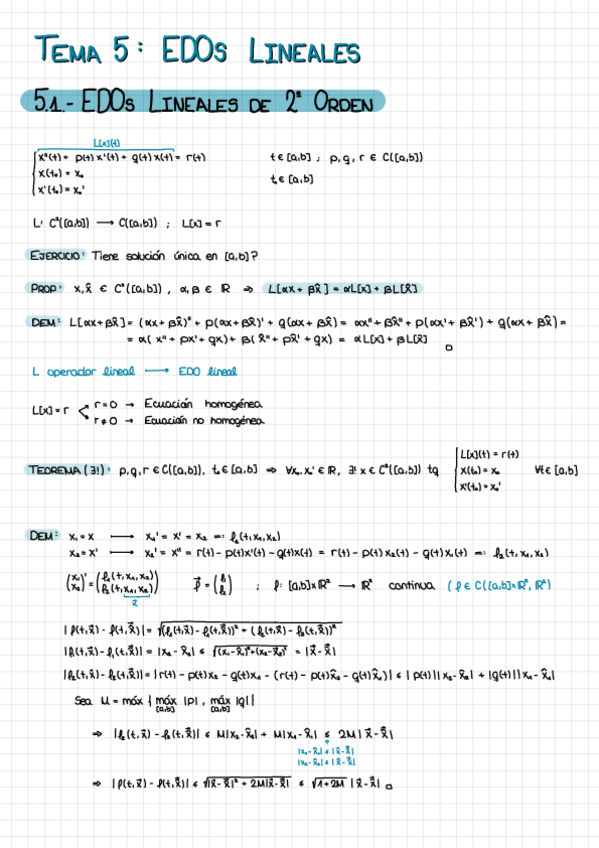 TEMA 5: EDOs LINEALES
5.1.- EDOs LINEALES DE 2º ORDEN
L[x](t)
x''(t) + p(t) x'(t) + q(t) x(t) = r(t)    t ∈ [a,b] ; p, q, r ∈ C([a,b])
x(t₀) = x₀    t₀ ∈ [a,b]
x'(t₀) = x₀'
L: C²([a,b]) → C([a,b]) ; L[x] = r
EJERCICIO: Tiene solución única en [a,b]?
PROP: x, x̂ ∈ C²([a,b]), α, β ∈ ℝ ⇒ L[αx + βx̂] = αL[x] + βL[x̂]
DEM: L[αx + βx̂] = (αx + βx̂)'' + p(αx + βx̂)' + q(αx + βx̂) = αx'' + βx̂'' + p(αx' + βx̂') + q(αx + βx̂) =
= α(x'' + px' + qx) + β(x̂'' + px̂' + qx̂) = αL[x] + βL[x̂] □
L operador lineal → EDO lineal
L[x] = r
r = 0 → Ecuación homogénea
r ≠ 0 → Ecuación no homogénea
L[x](t) = r(t)
TEOREMA (∃!): p, q, r ∈ C([a,b]), t₀ ∈ [a,b] ⇒ ∀x₀, x₀' ∈ ℝ, ∃! x ∈ C²([a,b]) tq x(t₀) = x₀ ∀t ∈ [a,b]
x'(t₀) = x₀'
DEM: x₁ = x ⟼ x₁' = x' = x₂ =: f₁(t, x₁, x₂)
x₂ = x' ⟼ x₂' = x'' = r(t) - p(t)x'(t) - q(t)x(t) = r(t) - p(t) x₂(t) - q(t) x₁(t) =: f₂(t, x₁, x₂)
(x₁ x₂)' = (f₁(t, x₁, x₂) f₂(t, x₁, x₂)) f⃗ = (f₁ f₂) ; f: [a,b]×ℝ² → ℝ² continua (f ∈ C([a,b]×ℝ², ℝ²)
x⃗
|f(t,x⃗) - f(t,x̂⃗)| = √(f₁(t,x⃗) - f₁(t,x̂⃗))² + (f₂(t,x⃗) - f₂(t,x̂⃗))²
|f₁(t,x⃗) - f₁(t,x̂⃗)| = |x₂ - x̂₂| ≤ √(x₁ - x̂₁)² + (x₂ - x̂₂)² = |x⃗ - x̂⃗|
|f₂(t,x⃗) - f₂(t,x̂⃗)| = |r(t) - p(t)x₂ - q(t)x₁ - (r(t) - p(t)x̂₂ - q(t)x̂₁)| ≤ |p(t)||x₂ - x̂₂| + |q(t)||x₁ - x̂₁|
Sea M = máx { máx |p| , máx |q| }
[a,b] [a,b]
⇒ |f₂(t,x⃗) - f₂(t,x̂⃗)| ≤ M|x₂ - x̂₂| + M|x₁ - x̂₁| ≤ 2M |x⃗ - x̂⃗|
|x₂ - x̂₂| ≤ |x⃗ - x̂⃗|
|x₁ - x̂₁| ≤ |x⃗ - x̂⃗|
⇒ |f(t,x⃗) - f(t,x̂⃗)| ≤ √|x⃗ - x̂⃗|² + 2M|x⃗ - x̂⃗| ≤ √1+2M |x⃗ - x̂⃗| □